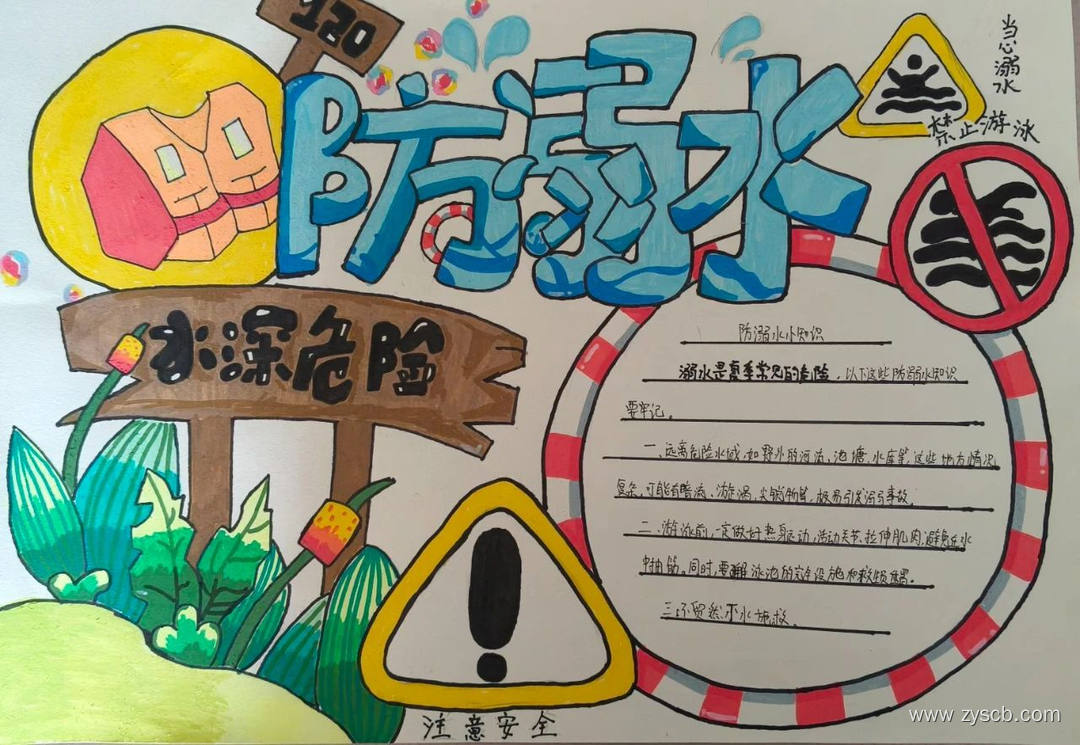 120
防溺水
当心溺水
禁止游泳
水深危险
防溺水小知识
溺水是夏季常见的危险,以下这些防溺水知识
要牢记。
一、远离危险水域,如野外的河流、池塘、水库等,这些地方情况
复杂,可能有暗流、漩涡、尖锐物等,极易引发溺水事故。
二、游泳前,一定做好热身运动,活动关节、拉伸肌肉,避免在水
中抽筋。同时,要了解泳池的安全设施和救援装置。
三、不贸然下水施救。
注意安全
www.zyscb.com